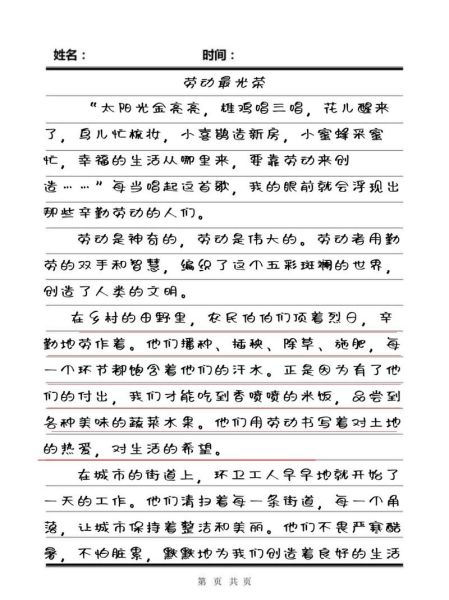 姓名： 时间：
劳动最光荣
“太阳光金亮亮，雄鸡唱三唱，花儿醒来
了，鸟儿忙梳妆，小喜鹊造新房，小蜜蜂采蜜
忙，幸福的生活从哪里来，要靠劳动来创
造……”每当唱起这首歌，我的眼前就会浮现出
那些辛勤劳动的人们。
劳动是神奇的，劳动是伟大的。劳动者用勤
劳的双手和智慧，编织了这个五彩斑斓的世界，
创造了人类的文明。
在乡村的田野里，农民伯伯们顶着烈日，辛
勤地劳作着。他们播种、插秧、除草、施肥，每
一个环节都饱含着他们的汗水。正是因为有了他
们的付出，我们才能吃到香喷喷的米饭，品尝到
各种美味的蔬菜水果。他们用劳动书写着对土地
的热爱，对生活的希望。
在城市的街道上，环卫工人早早地就开始了
一天的工作。他们清扫着每一条街道，每一个角
落，让城市保持着整洁和美丽。他们不畏严寒酷
暑，不怕脏累，默默地为我们创造着良好的生活
第 页 共 页